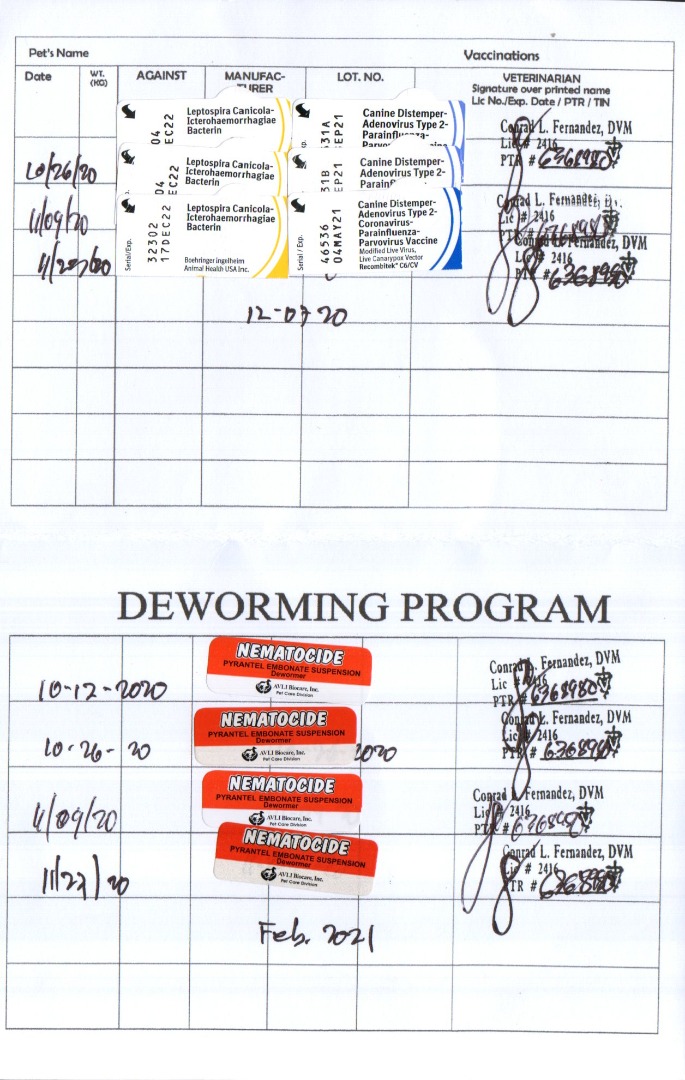 Pet's Name Vaccinations
Date WT. (KG) AGAINST MANUFAC-TURER LOT. NO. VETERINARIAN
Signature over printed name
Lic No./Exp. Date / PTR / TIN
Leptospira Canicola-
Icterohaemorrhagiae
Bacterin
04
EC22
Canine Distemper-
Adenovirus Type 2-
Parainfluenza-
31A
EP21
Conrad L. Fernandez, DVM
Lic # 2416
PTR #
10/26/20
Leptospira Canicola-
Icterohaemorrhagiae
Bacterin
04
EC22
Canine Distemper-
Adenovirus Type 2-
31B
EP21
Conrad L. Fernandez,
Lic # 2416
11/09/20
Serial/Exp.
32302
17DEC22
Leptospira Canicola-
Icterohaemorrhagiae
Bacterin
Boehringer ingelheim
Animal Health USA Inc.
Serial / Exp.
46536
04MAY21
Canine Distemper-
Adenovirus Type 2-
Coronavirus-
Parainfluenza-
Parvovirus Vaccine
Modified Live Virus,
Live Canarypox Vector
Recombitek® C6/CV
Conrad L. Fernandez, DVM
Lic # 2416
PTR #
12-07-20
DEWORMING PROGRAM
10-12-2020
NEMATOCIDE
PYRANTEL EMBONATE SUSPENSION
Dewormer
AVLI Biocare, Inc.
Pet Care Division
Conrad L. Fernandez, DVM
Lic # 2416
PTR # 6368980
10-26-20
NEMATOCIDE
PYRANTEL EMBONATE SUSPENSION
Dewormer
AVLI Biocare, Inc.
Pet Care Division
2020
Conrad L. Fernandez, DVM
Lic # 2416
PTR #
11/09/20
NEMATOCIDE
PYRANTEL EMBONATE SUSPENSION
Dewormer
AVLI Biocare, Inc.
Pet Care Division
Conrad L. Fernandez, DVM
Lic # 2416
PTR #
11/23/20
NEMATOCIDE
PYRANTEL EMBONATE SUSPENSION
Dewormer
AVLI Biocare, Inc.
Pet Care Division
Conrad L. Fernandez, DVM
Lic # 2416
PTR #
Feb. 2021